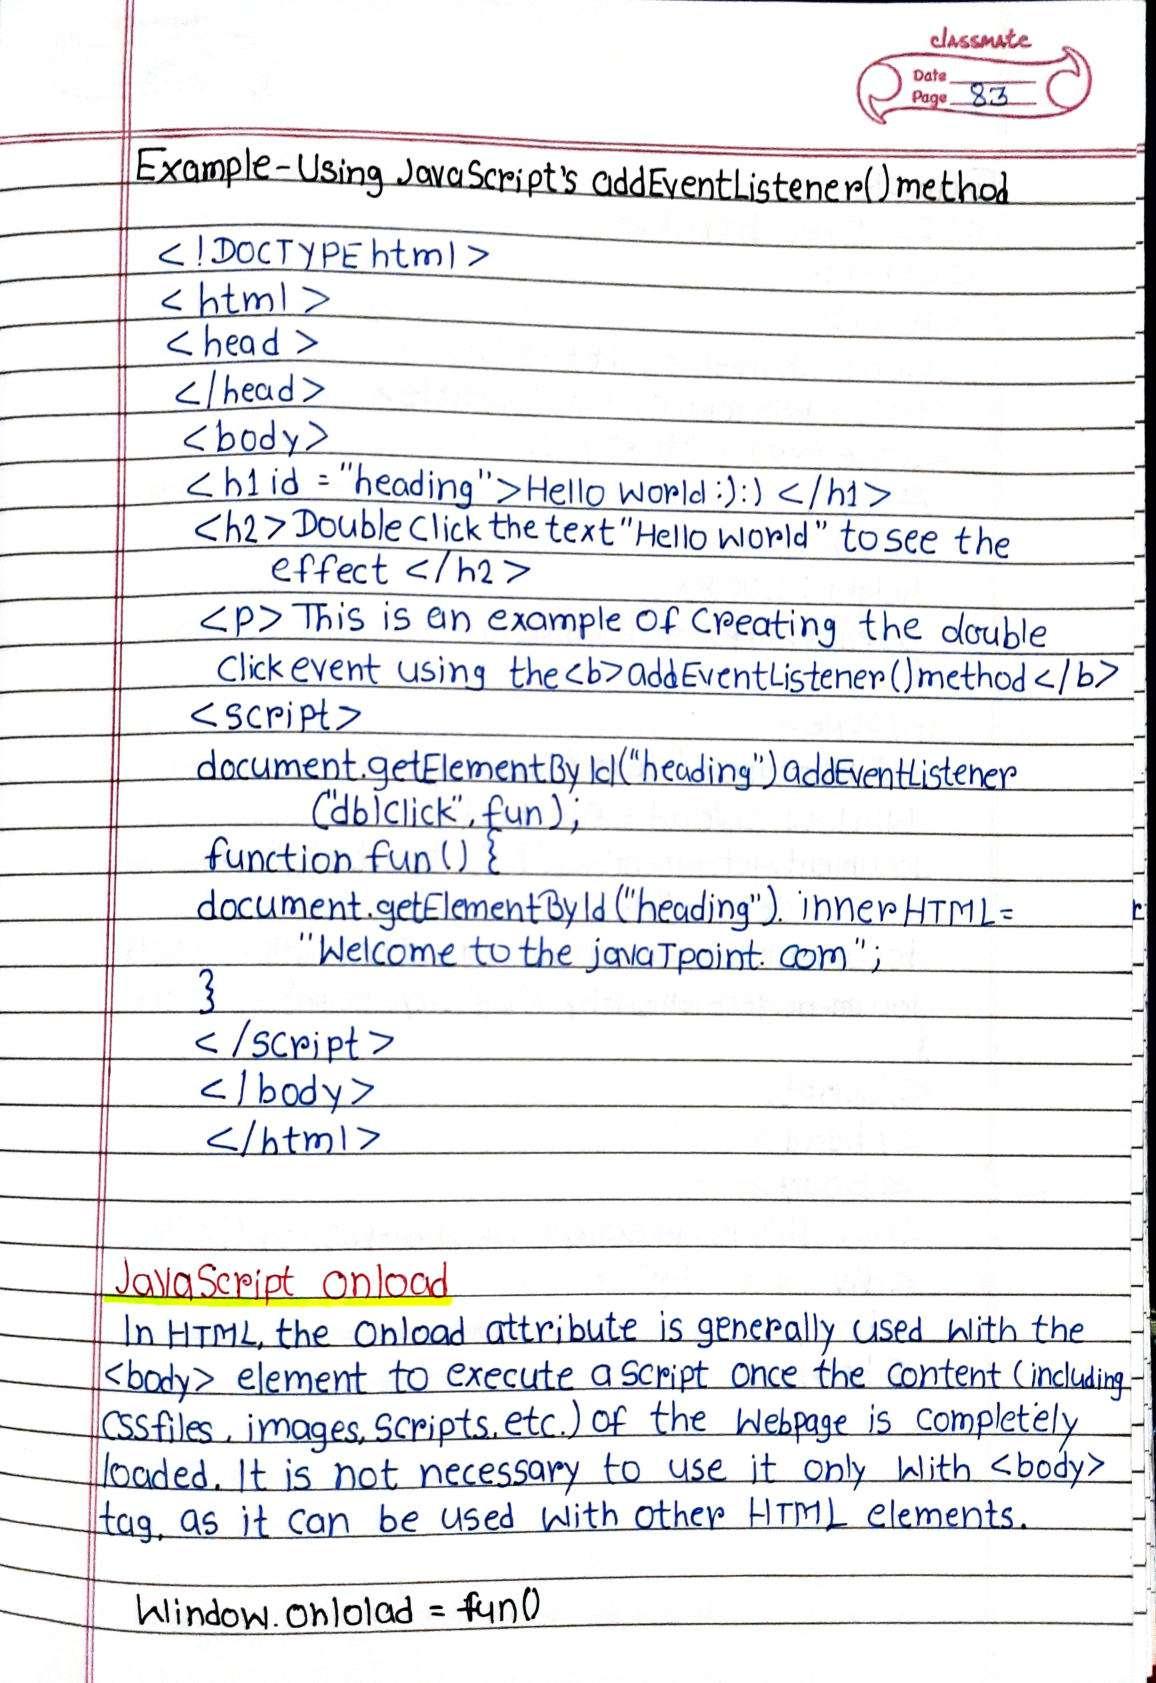 classmate
Date
Page 83
Example-Using JavaScript's addEventListener() method
<!DOCTYPE html>
<html>
<head>
</head>
<body>
<h1 id = "heading">Hello World :):) </h1>
<h2> Double Click the text "Hello World" to see the
effect </h2>
<p> This is an example of Creating the double
Click event using the <b> addEventListener() method </b>
<script>
document.getElementById("heading") addEventListener
("dblclick", fun);
function fun () {
document.getElementById ("heading"). innerHTML =
"Welcome to the javaTpoint. com";
}
</script>
</body>
</html>
JavaScript onload
In HTML, the Onload attribute is generally used with the
<body> element to execute a script once the content (including
CSS files, images, scripts, etc.) of the Webpage is completely
loaded. It is not necessary to use it only with <body>
tag, as it can be used with other HTML elements.
Window.onlolad = fun()